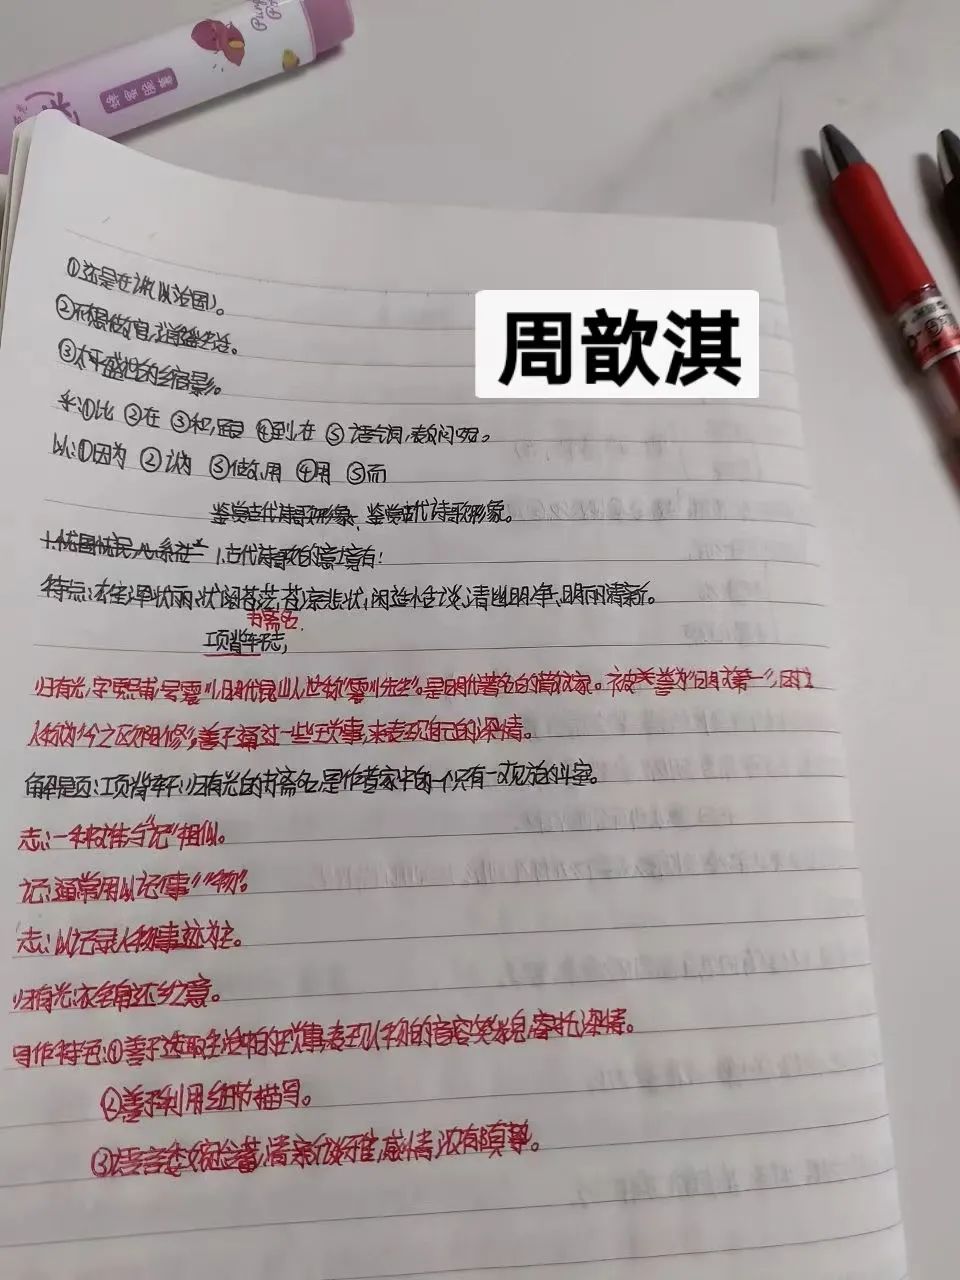 周歆淇
①还是在讲以治国。
②不想做官,
③太平盛世的缩影。
乎:①比 ②在 ③和,跟 ④到,在 ⑤语气词,表疑问,呢。
以:①因为 ②认为 ③做,用 ④用 ⑤而
鉴赏古代诗歌形象、鉴赏古代诗歌形象。
1.忧国忧民,心系 1.古代诗歌的意境有:
特点:雄浑壮丽,壮阔苍茫,苍凉悲壮,闲适恬淡,清幽明净,明丽清新。
书斋名
项脊轩志,
归有光,字熙甫,号震川,明代昆山人,世称“震川先生”。是明代著名的散文家。被誉为“明文第一”,
人称为“今之欧阳修”,善于通过一些琐事,来表现自己的深情。
解题:项脊轩:归有光的书斋名,是作者家中的一个只有一丈见方的斗室。
志:一种文体与“记”相似。
记:通常用以记“事”“物”。
志:以记录人物事迹为主。
归有光:
写作特色:①善于选取生活中的琐事,表现人物的音容笑貌,寄托深情。
②善于利用细节描写。
③语言委婉含蓄,清新